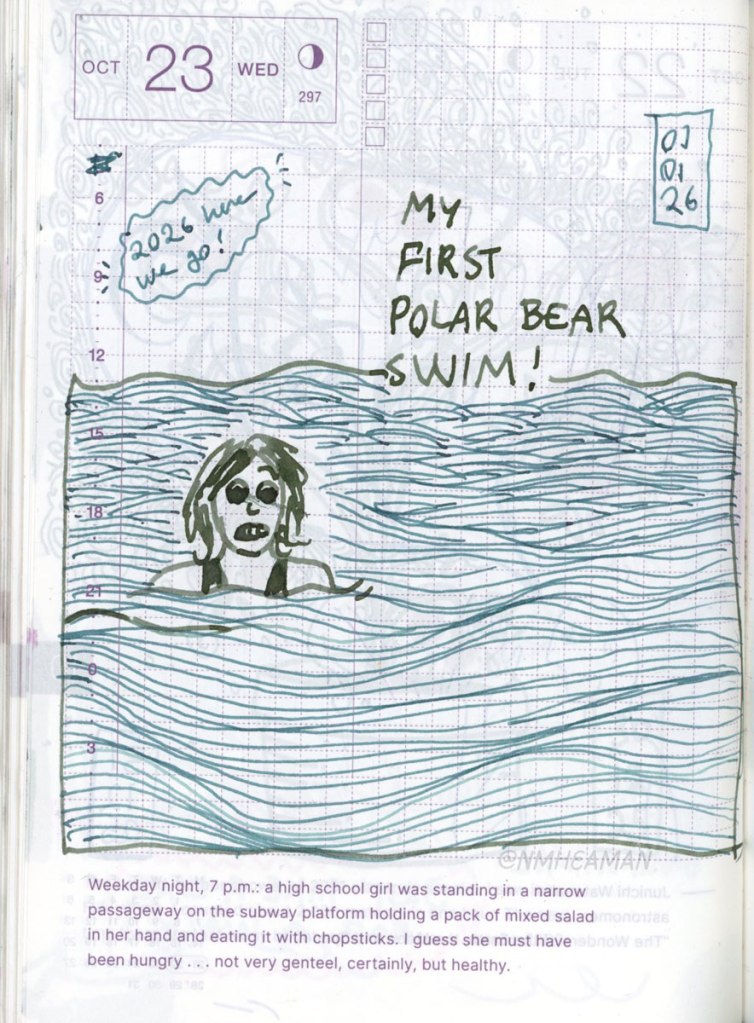 OCT 23 WED
297
01
01
26
6
2026 here
we go!
9
MY
FIRST
POLAR BEAR
12
SWIM!
15
18
21
0
3
@NMHEAMAN
Weekday night, 7 p.m.: a high school girl was standing in a narrow
passageway on the subway platform holding a pack of mixed salad
in her hand and eating it with chopsticks. I guess she must have
been hungry . . . not very genteel, certainly, but healthy.